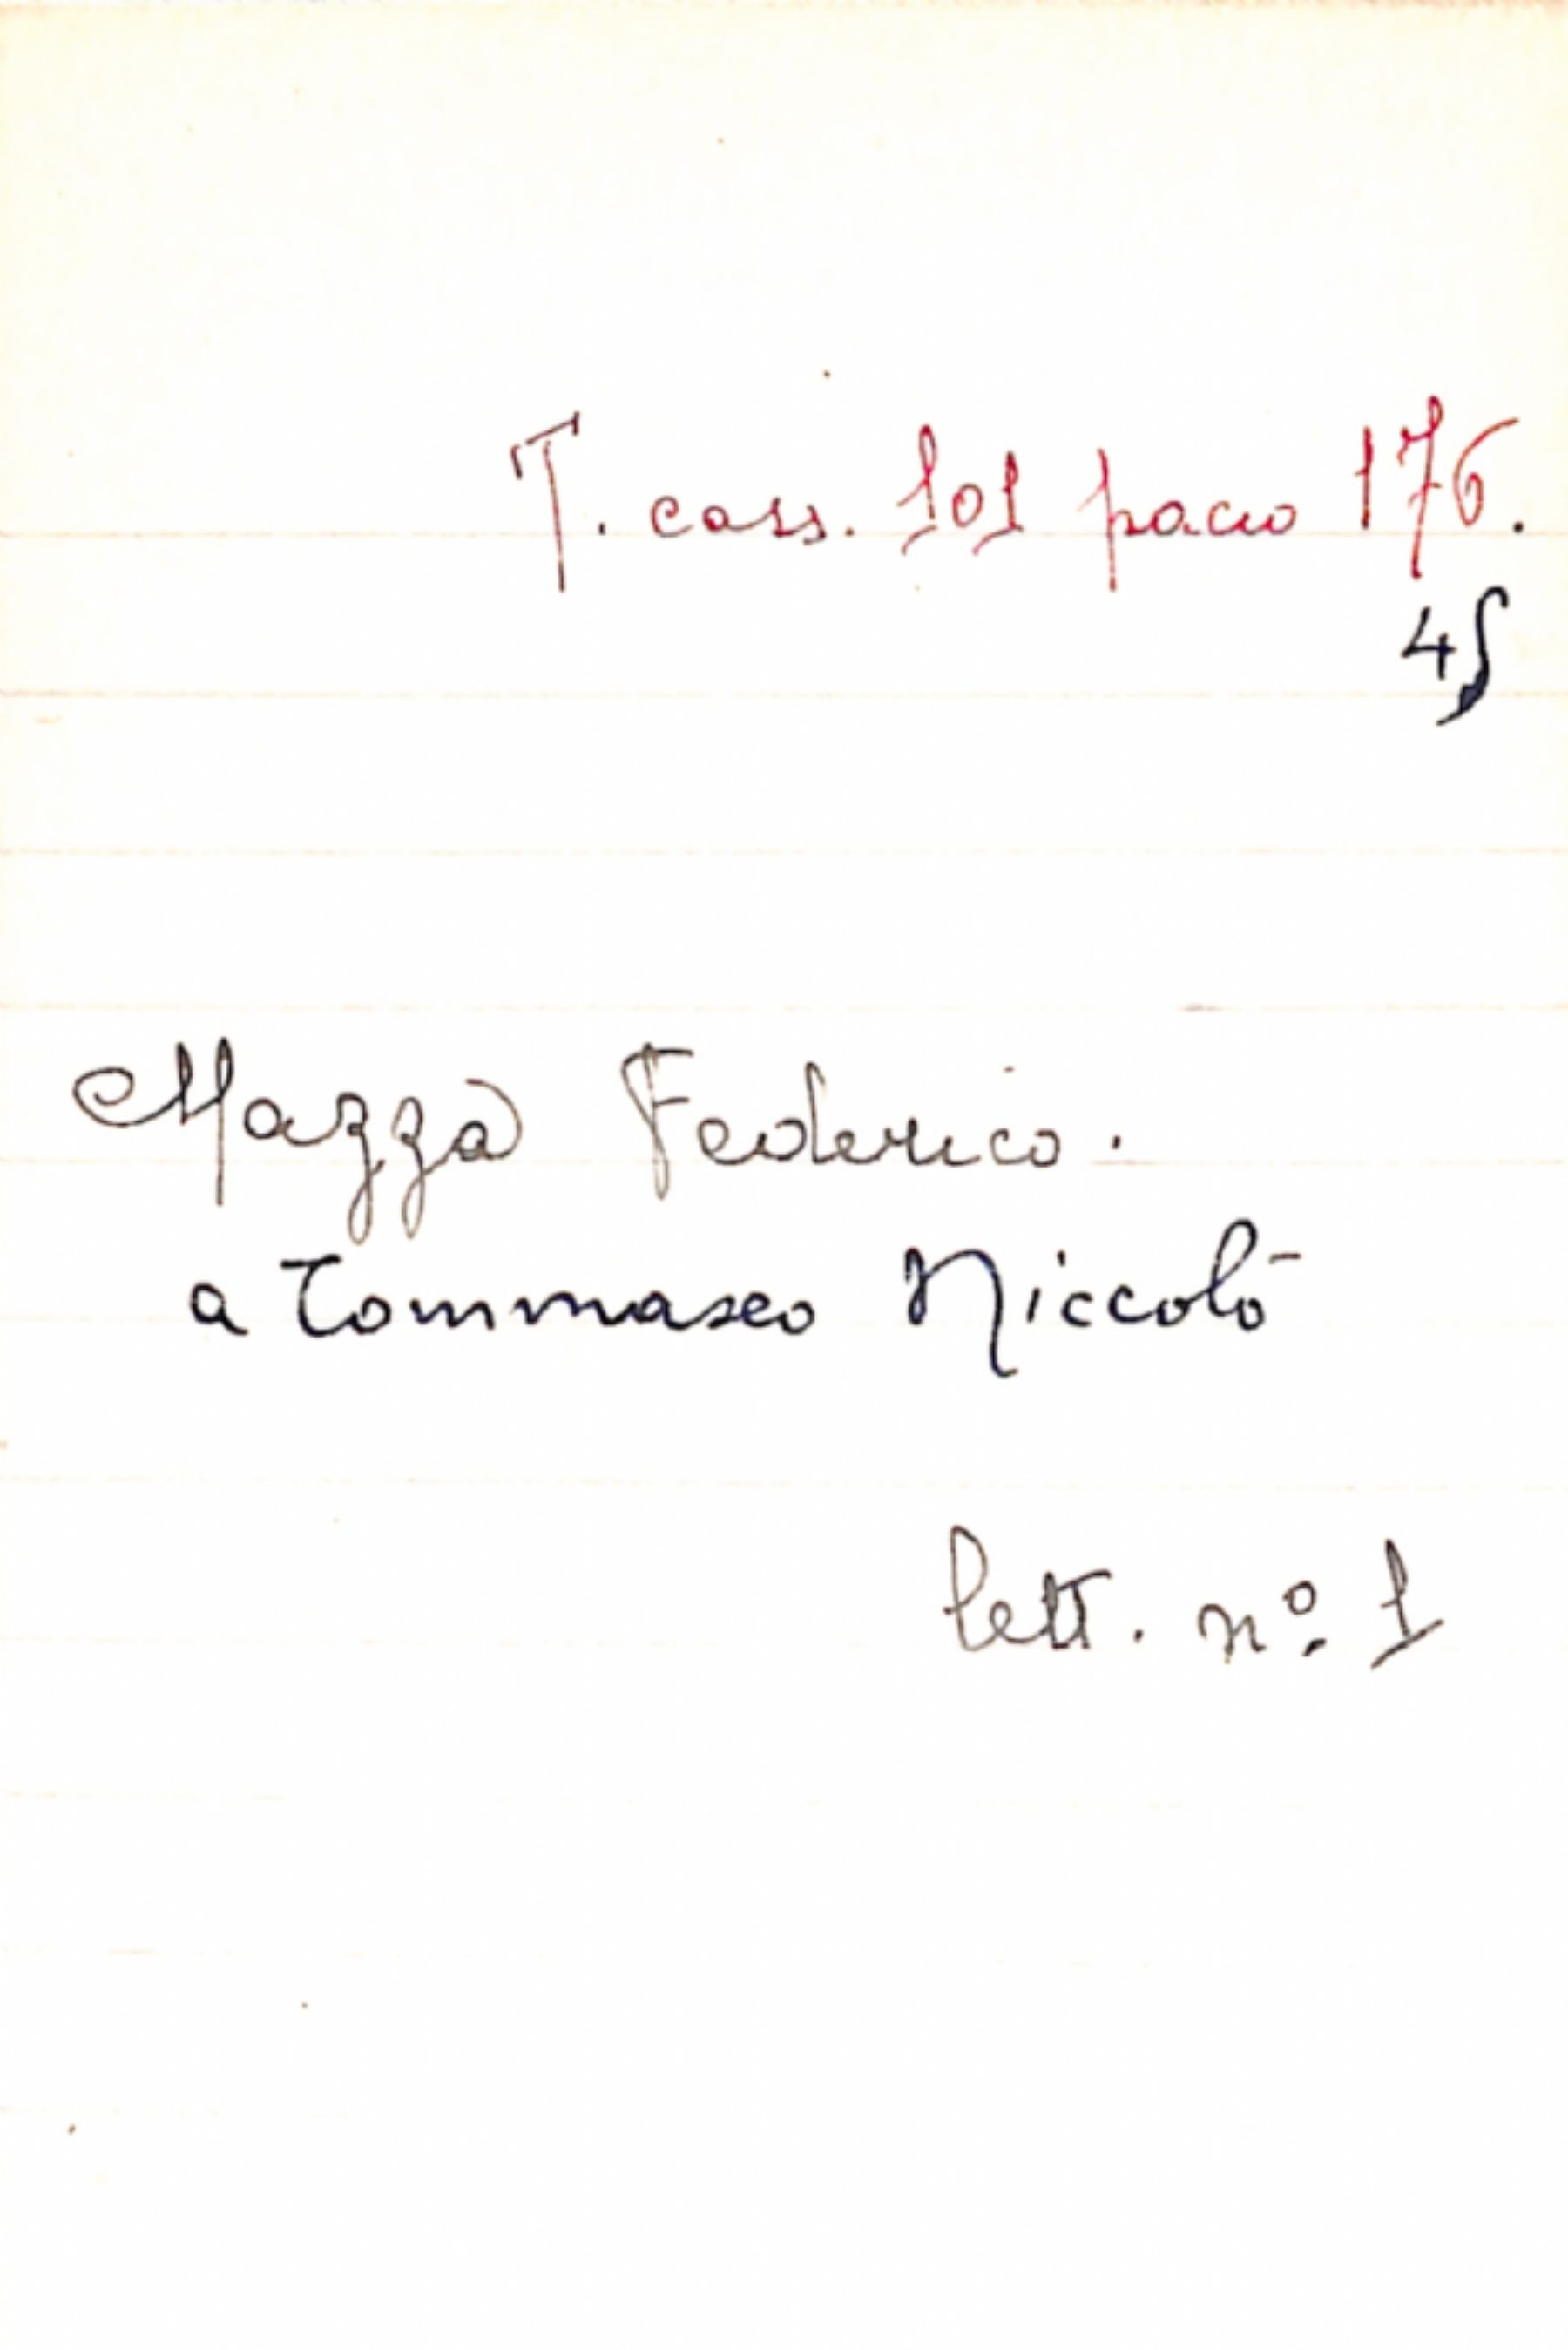 T. cass. 101 pacco 176.
45
Mazza Federico.
a Tommaseo Niccolò
lett. nº 1